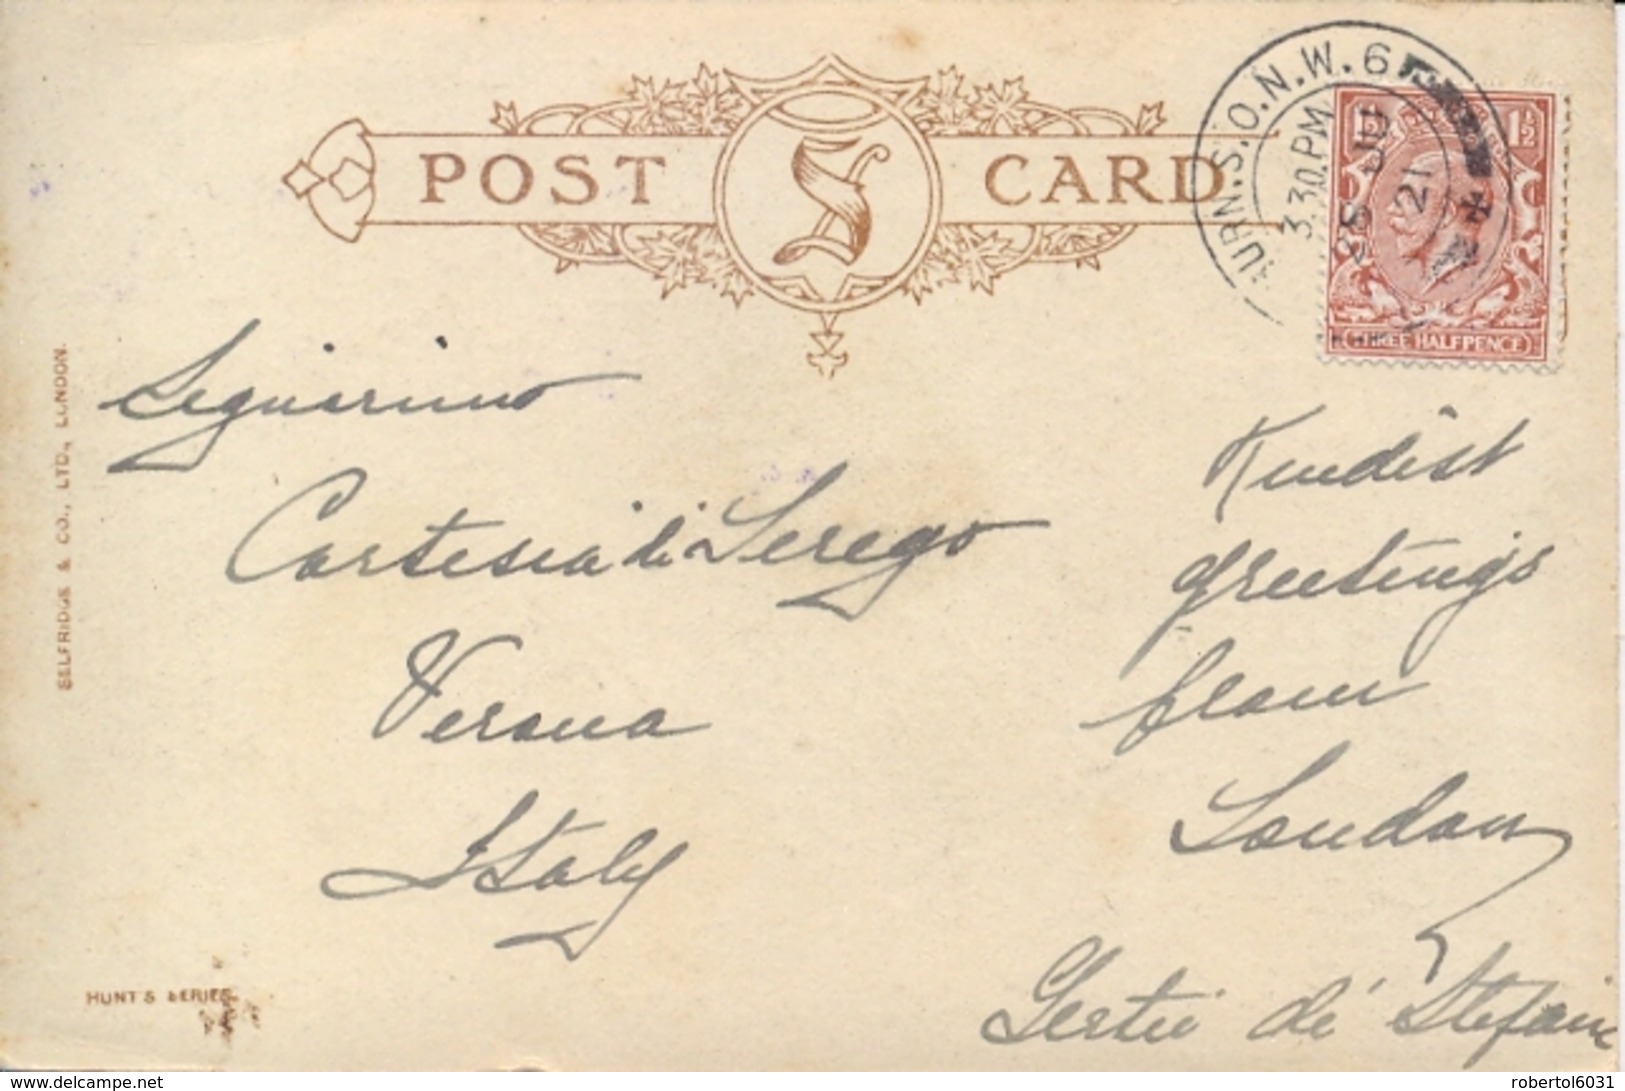 POST CARD
URN.S.O.N.W.6
3.30.PM
JU
21
1½
THREE HALFPENCE
SELFRIDGE & CO., LTD., LONDON.
Cortesia di Serego
Verona
Italy
Kindest
greetings
from
London
Gertie de Stefani
HUNT'S SERIES.
www.delcampe.net
robertol6031